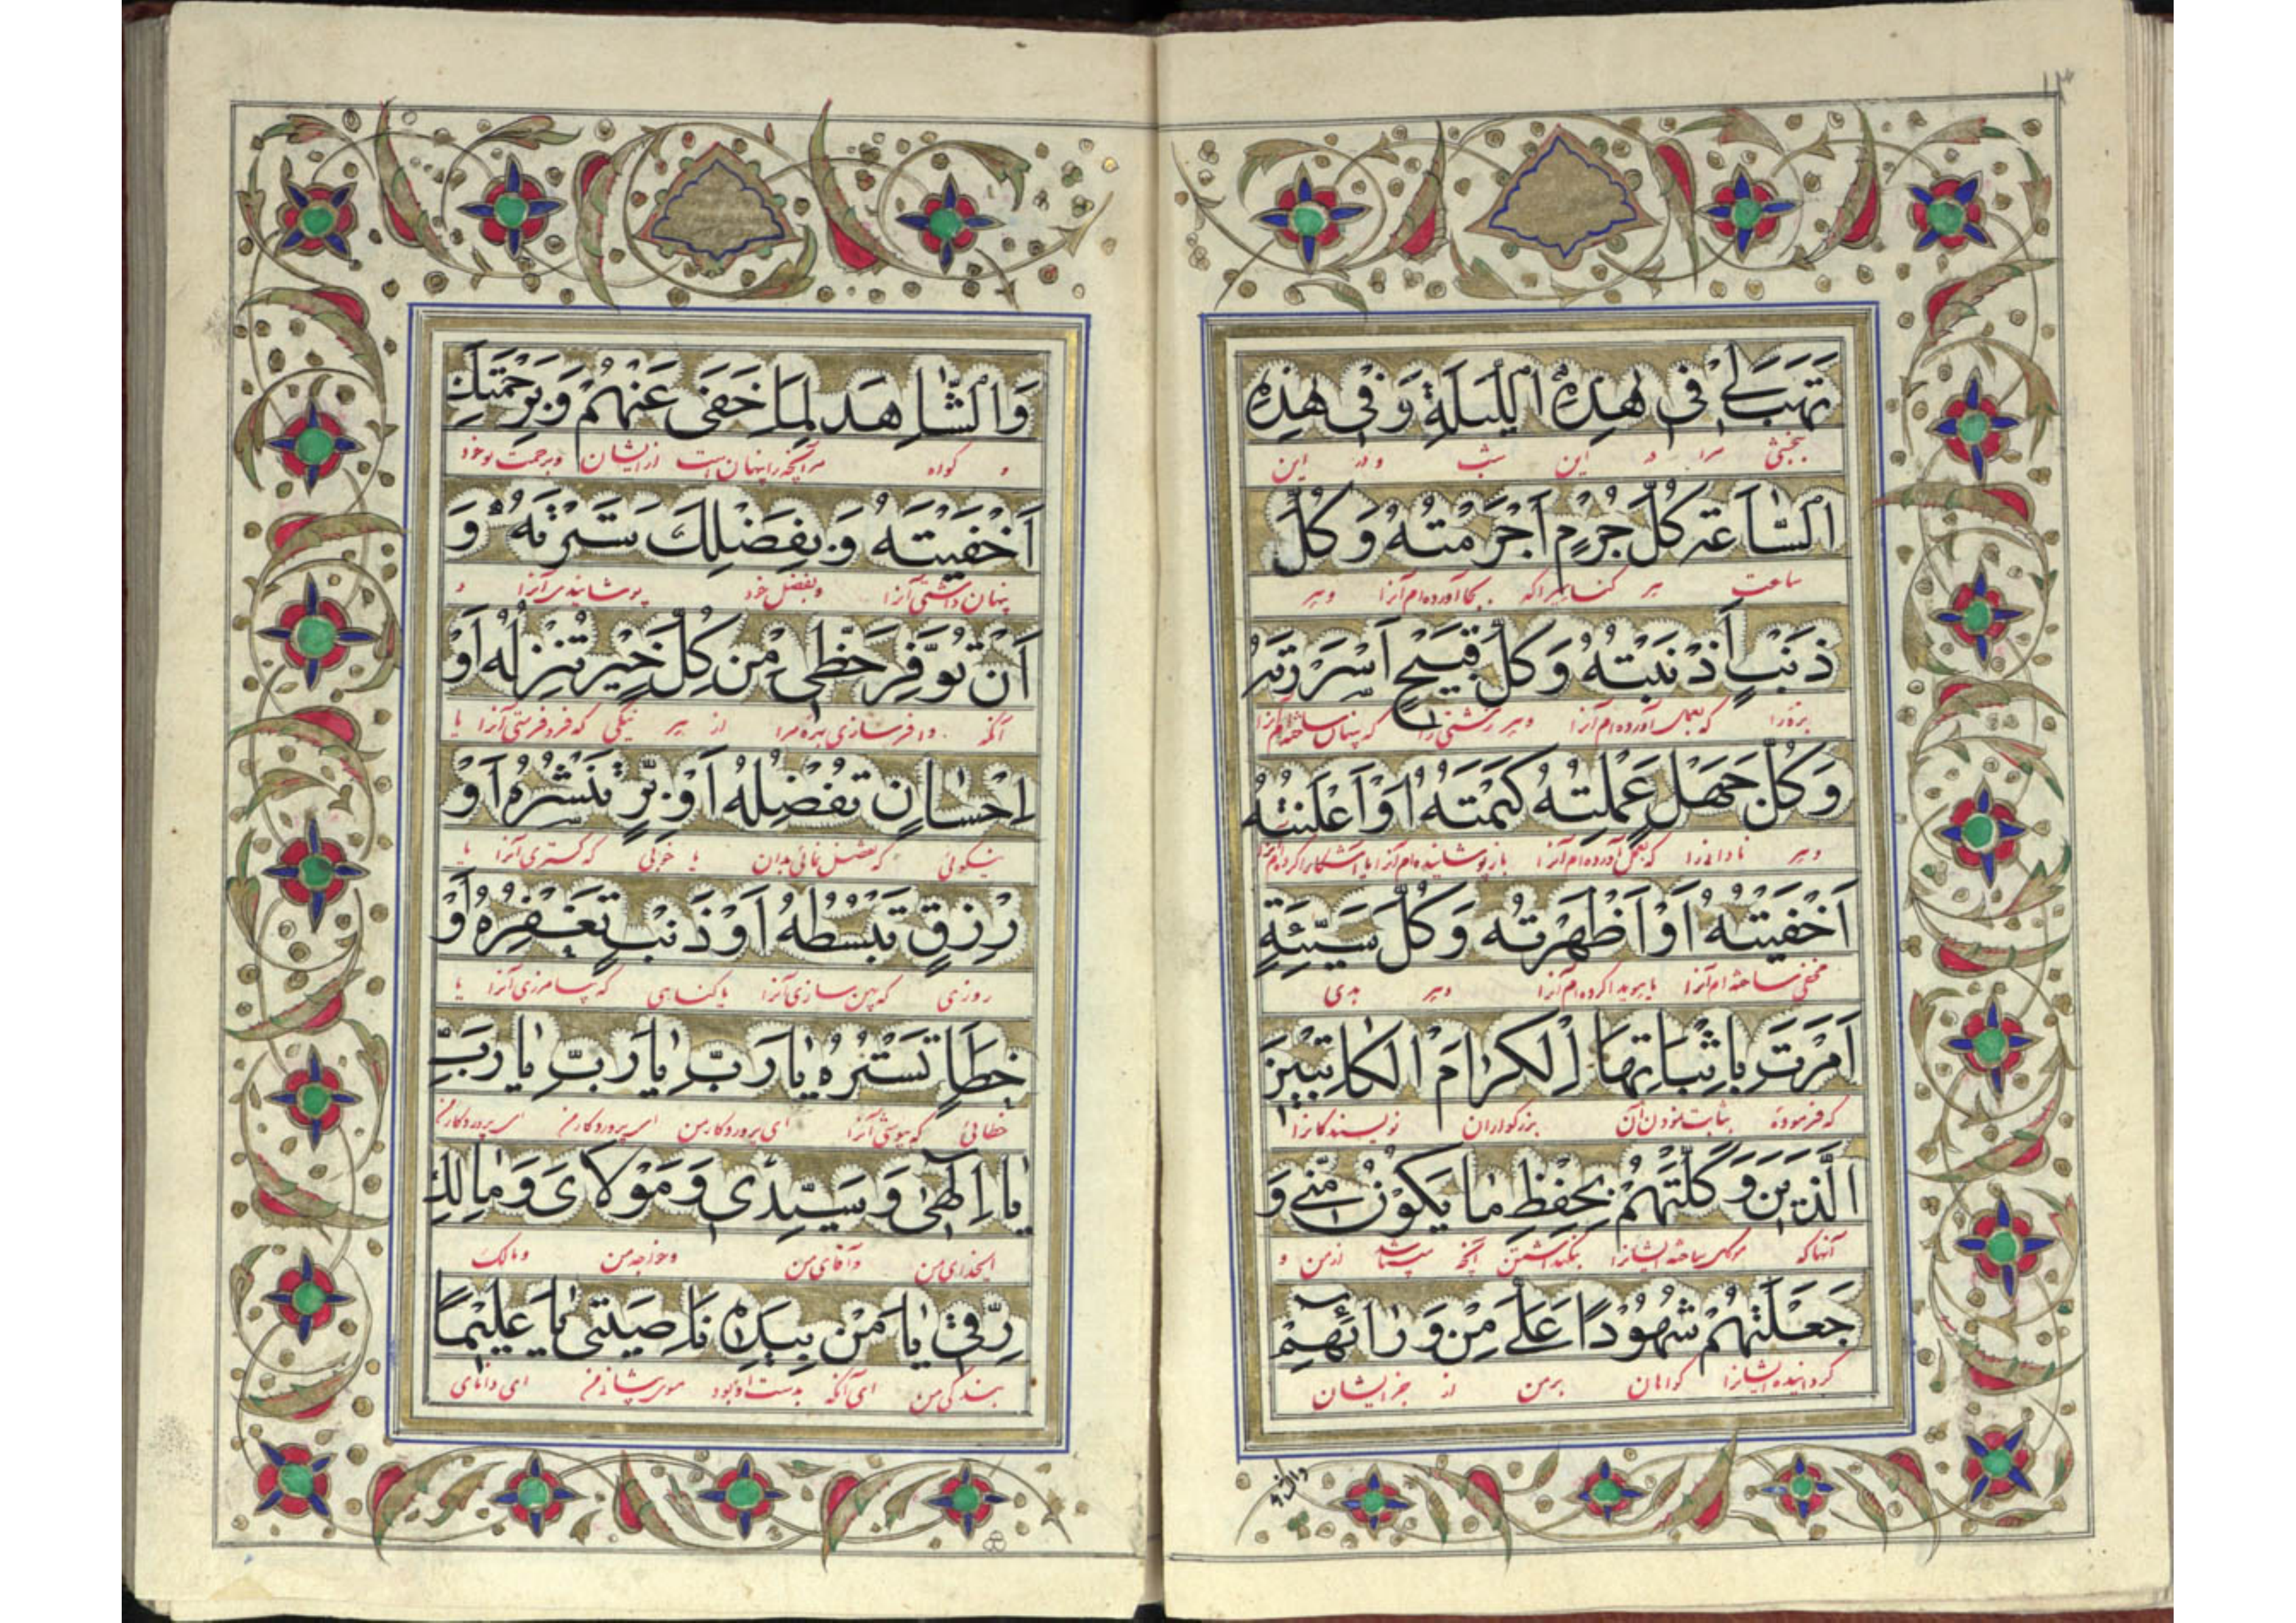 تَهَبَ لي في هٰذِهِ اللَّيْلَةِ وَفي هٰذِهِ
ببخشی مرا در این شب و در این
السّٰاعَةِ كُلَّ جُرْمٍ اَجْرَمْتُهُ وَكُلَّ
ساعت هر گناهیرا که بجا آورده‌ام آنرا و هر
ذَنْبٍ اَذْنَبْتُهُ وَكُلَّ قَبيحٍ اَسْرَرْتُهُ
که بعمل آورده‌ام آنرا و هر زشتی را که پنهان ساخته‌ام آنرا
وَكُلَّ جَهْلٍ عَمِلْتُهُ كَتَمْتُهُ اَوْ اَعْلَنْتُهُ
و هر نادانیرا که بعمل آورده‌ام آنرا باز پوشانیده‌ام آنرا یا آشکارا کرده‌ام آنرا
اَخْفَيْتُهُ اَوْ اَظْهَرْتُهُ وَكُلَّ سَيِّئَةٍ
مخفی ساخته‌ام آنرا یا هویدا کرده‌ام آنرا و هر بدی
اَمَرْتَ بِاِثْبٰاتِهَا الْكِرٰامَ الْكٰاتِبينَ
که فرمودهٔ بثابت نمودن آن بزرگواران نویسندگانرا
الَّذينَ وَكَّلْتَهُمْ بِحِفْظِ مٰا يَكُوْنُ مِنّي وَ
آنها که موکل ساختهٔ ایشانرا بنگهداشتن آنچه میباشد از من و
جَعَلْتَهُمْ شُهُوْدًا عَلَيَّ مِنْ وَرٰائِهِمْ
گردانیدهٔ ایشانرا گواهان بر من از جز ایشان
وَالشّٰاهِدَ لِمٰا خَفِيَ عَنْهُمْ وَبِرَحْمَتِكَ
و گواه مر آنچه را پنهان است از ایشان و برحمت خود
اَخْفَيْتَهُ وَبِفَضْلِكَ سَتَرْتَهُ وَ
پنهان داشتی آنرا و بفضل خود پوشانیدی آنرا و
اَنْ تُوَفِّرَ حَظّي مِنْ كُلِّ خَيْرٍ تُنْزِلُهُ اَوْ
آنکه وافر سازی بهره مرا از هر نیکی که فرو فرستی آنرا یا
اِحْسٰانٍ تُفْضِلُهُ اَوْ بِرٍّ تَنْشُرُهُ اَوْ
نیکوئی که تفضل نمائی بدان یا خوبی که گستری آنرا یا
رِزْقٍ تَبْسُطُهُ اَوْ ذَنْبٍ تَغْفِرُهُ اَوْ
روزی که پهن سازی آنرا یا گناهی که بیامرزی آنرا یا
خَطَاٍ تَسْتُرُهُ يٰا رَبِّ يٰا رَبِّ يٰا رَبِّ
خطائی که بپوشی آنرا ای پروردگار من ای پروردگار من ای پروردگار من
يٰا اِلٰهي وَسَيِّدي وَمَوْلايَ وَمٰالِكَ
ایخدای من و آقای من و خواجه من و مالک
رِقّي يٰا مَنْ بِيَدِهِ نٰاصِيَتي يٰا عَليمًا
بندگی من ای آنکه بدست او بود موی پیشانی من ای دانای